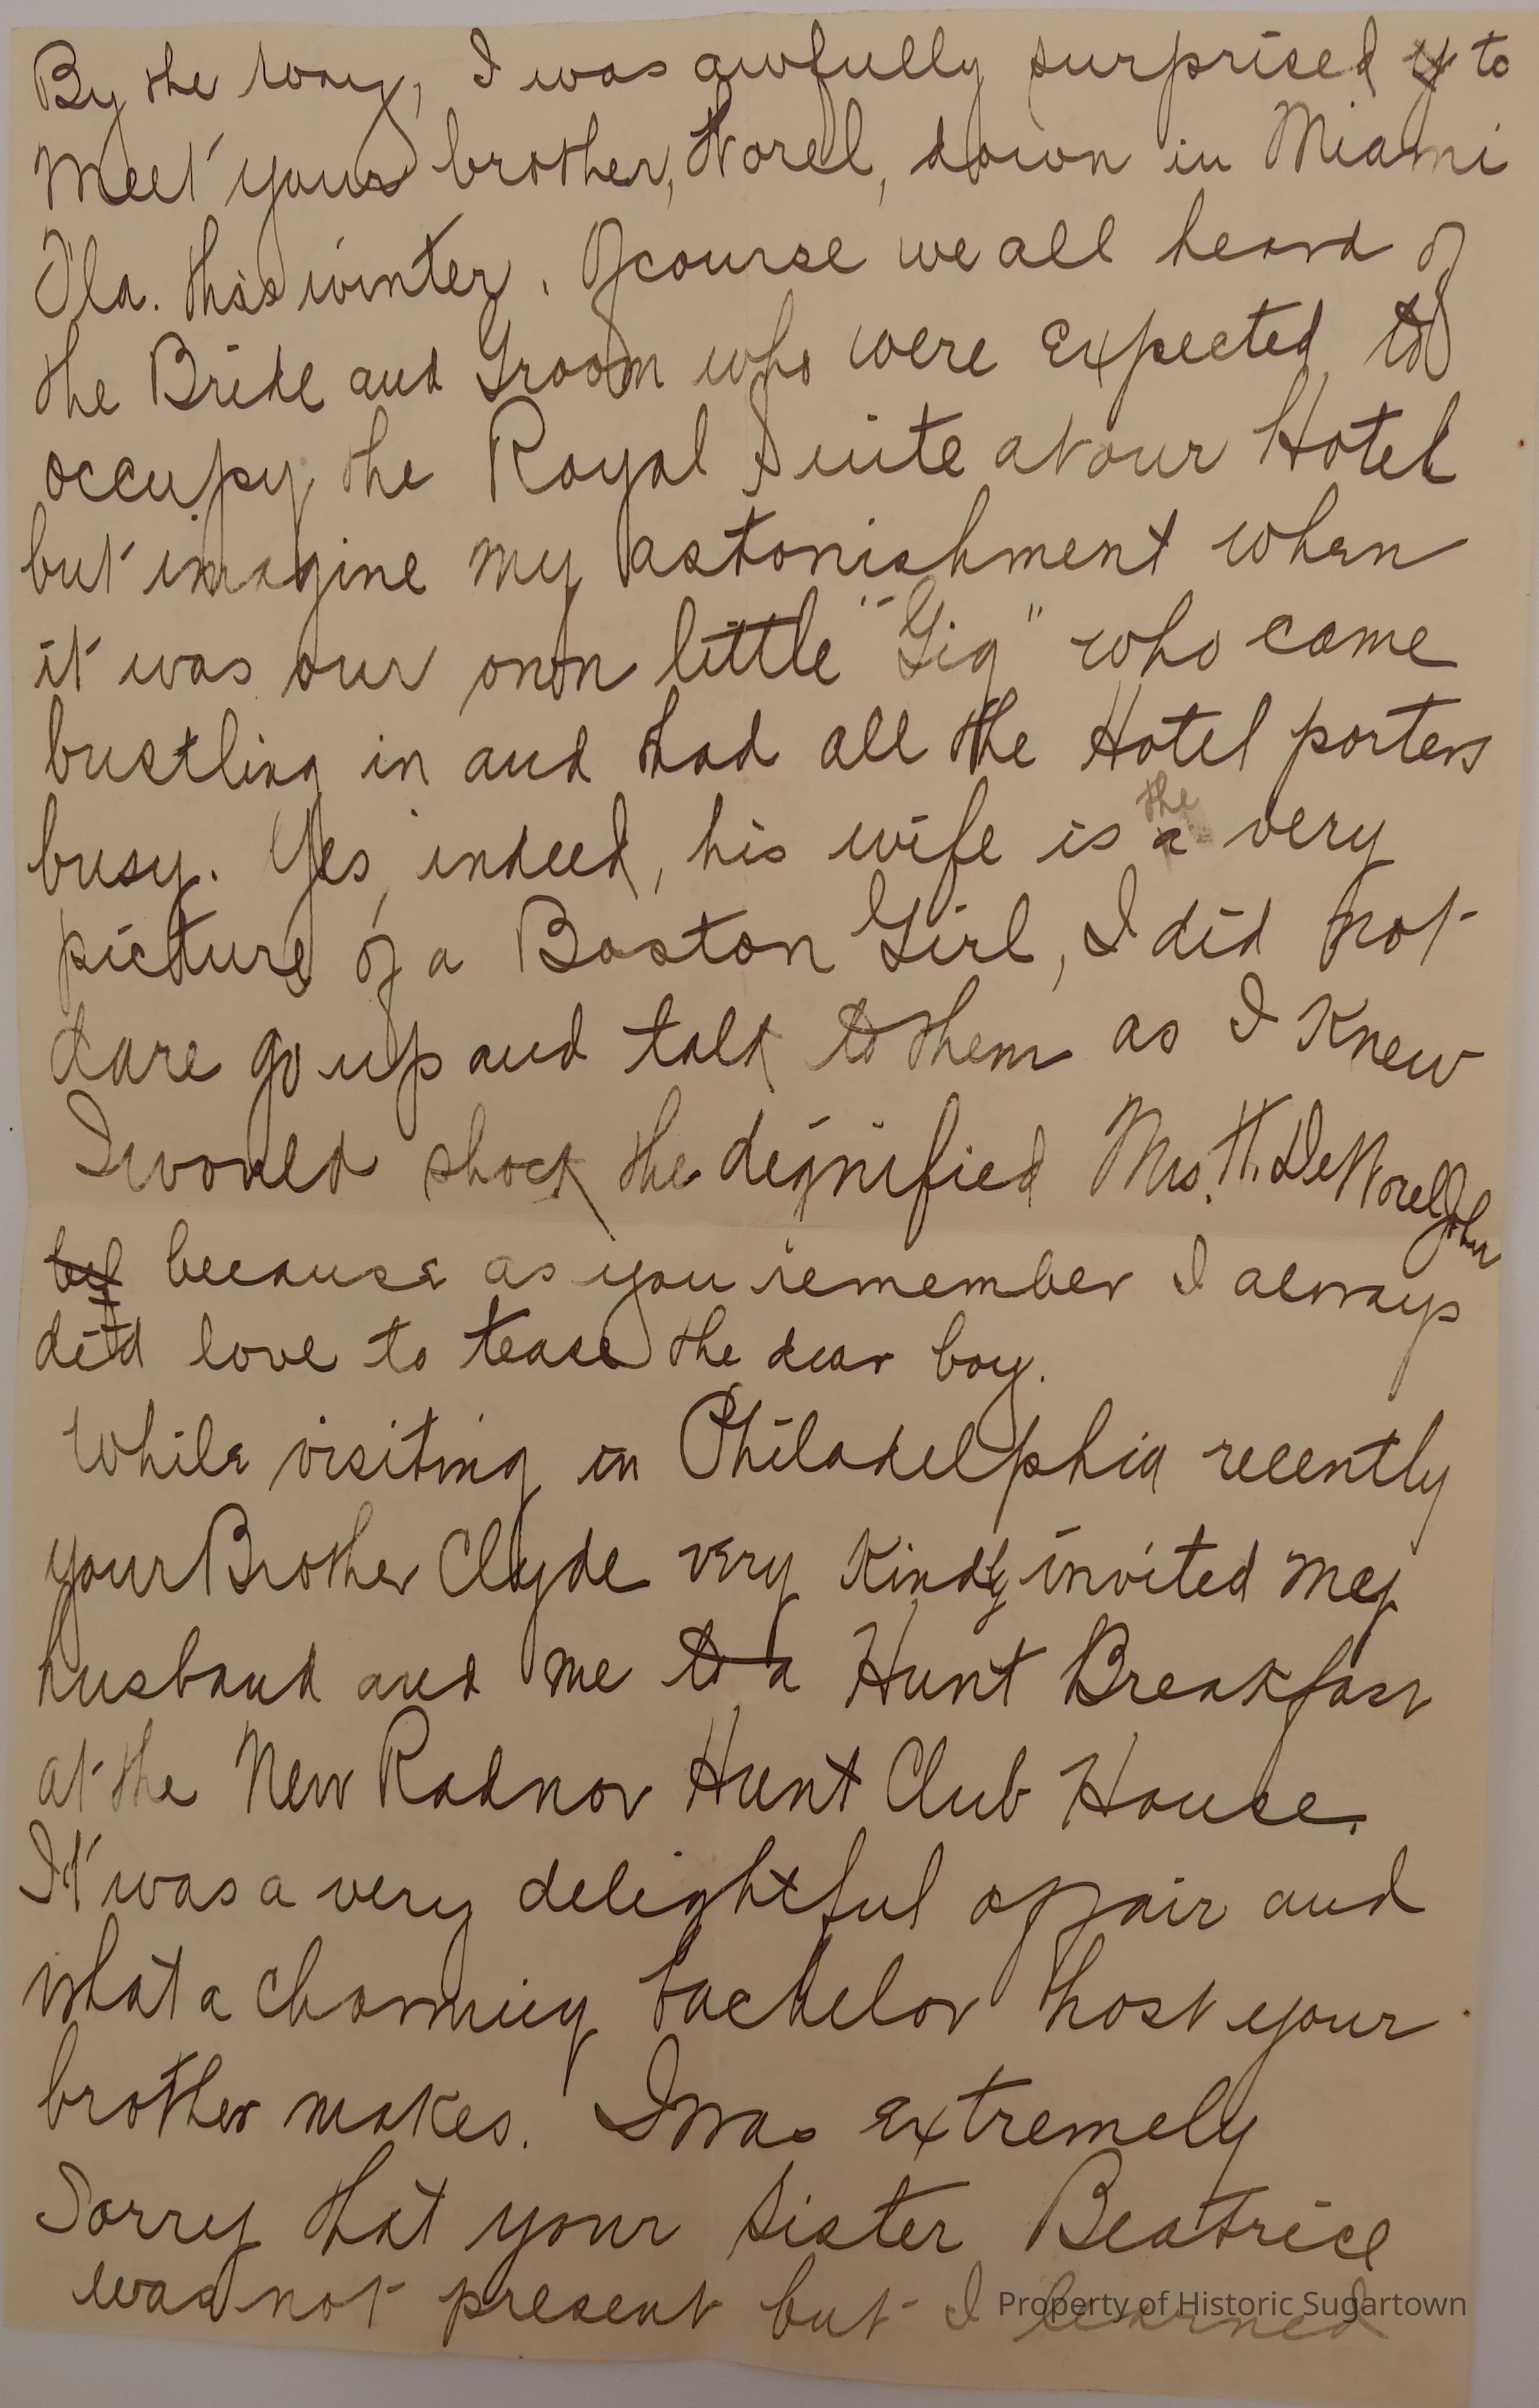 By the way, I was awfully surprised to
meet your brother, Norel, down in Miami
Fla. this winter. Of course we all heard of
the Bride and Groom who were expected to
occupy the Royal Suite at our Hotel
but imagine my astonishment when
it was our own little "Gig" who came
bustling in and had all the Hotel porters
busy. Yes, indeed, his wife is a the very
picture of a Boston Girl, I did not
dare go up and talk to them as I knew
I would shock the dignified Mrs. H. DeNorel John
because as you remember I always
did love to tease the dear boy.
While visiting in Philadelphia recently
your Brother Clyde very kindly invited my
husband and me to a Hunt Breakfast
at the New Radnor Hunt Club House.
It was a very delightful affair and
what a charming bachelor host your
brother makes. I was extremely
Sorry that your Sister Beatrice
was not present but I learned
Property of Historic Sugartown